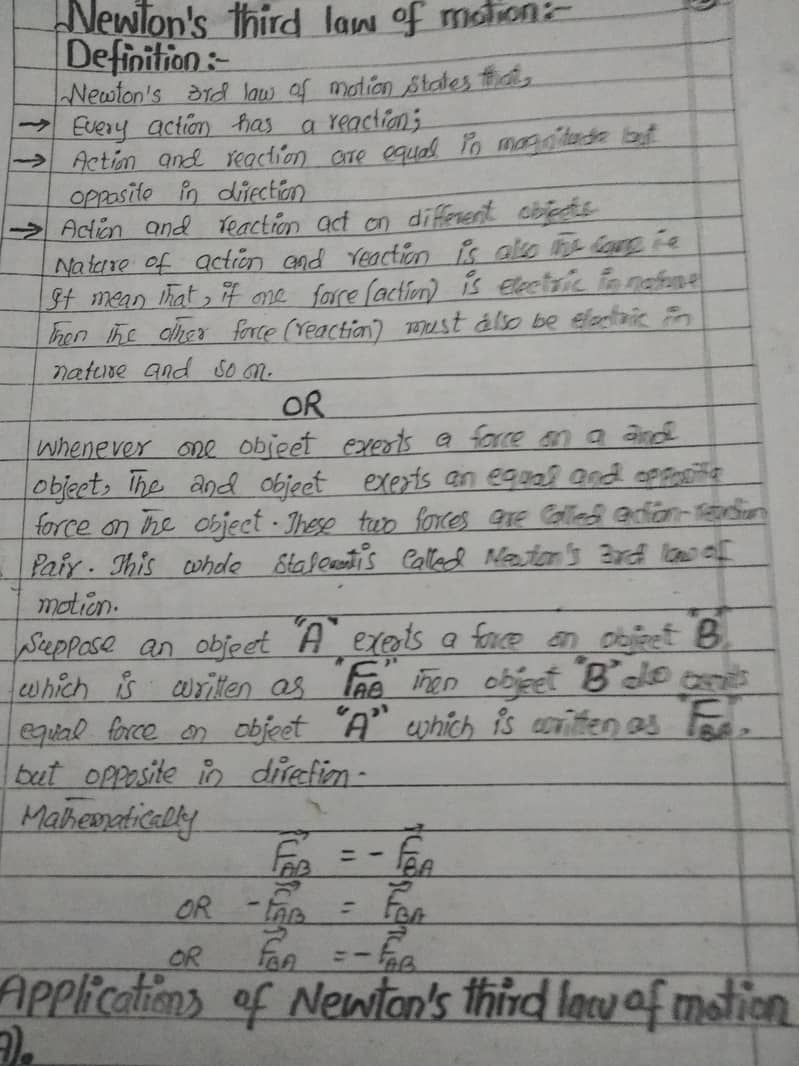 Newton's third law of motion:-
Definition:-
Newton's 3rd law of motion states that,
→ Every action has a reaction;
→ Action and reaction are equal in magnitude but
opposite in direction
→ Action and reaction act on different objects
Nature of action and reaction is also the same i.e
It mean that, if one force (action) is electric in nature
Then the other force (reaction) must also be electric in
nature and so on.
OR
Whenever one object exerts a force on a 2nd
object, The 2nd object exerts an equal and opposite
force on the object. These two forces are called action-reaction
Pair. This whole Statement is called Newton's 3rd law of
motion.
Suppose an object "A" exerts a force on object "B"
which is written as "F_AB" Then object "B" also exerts
equal force on object "A" which is written as "F_BA",
but opposite in direction-
Mathematically
F⃗_AB = - F⃗_BA
OR -F⃗_AB = F⃗_BA
OR F⃗_BA = -F⃗_AB
Applications of Newton's third law of motion